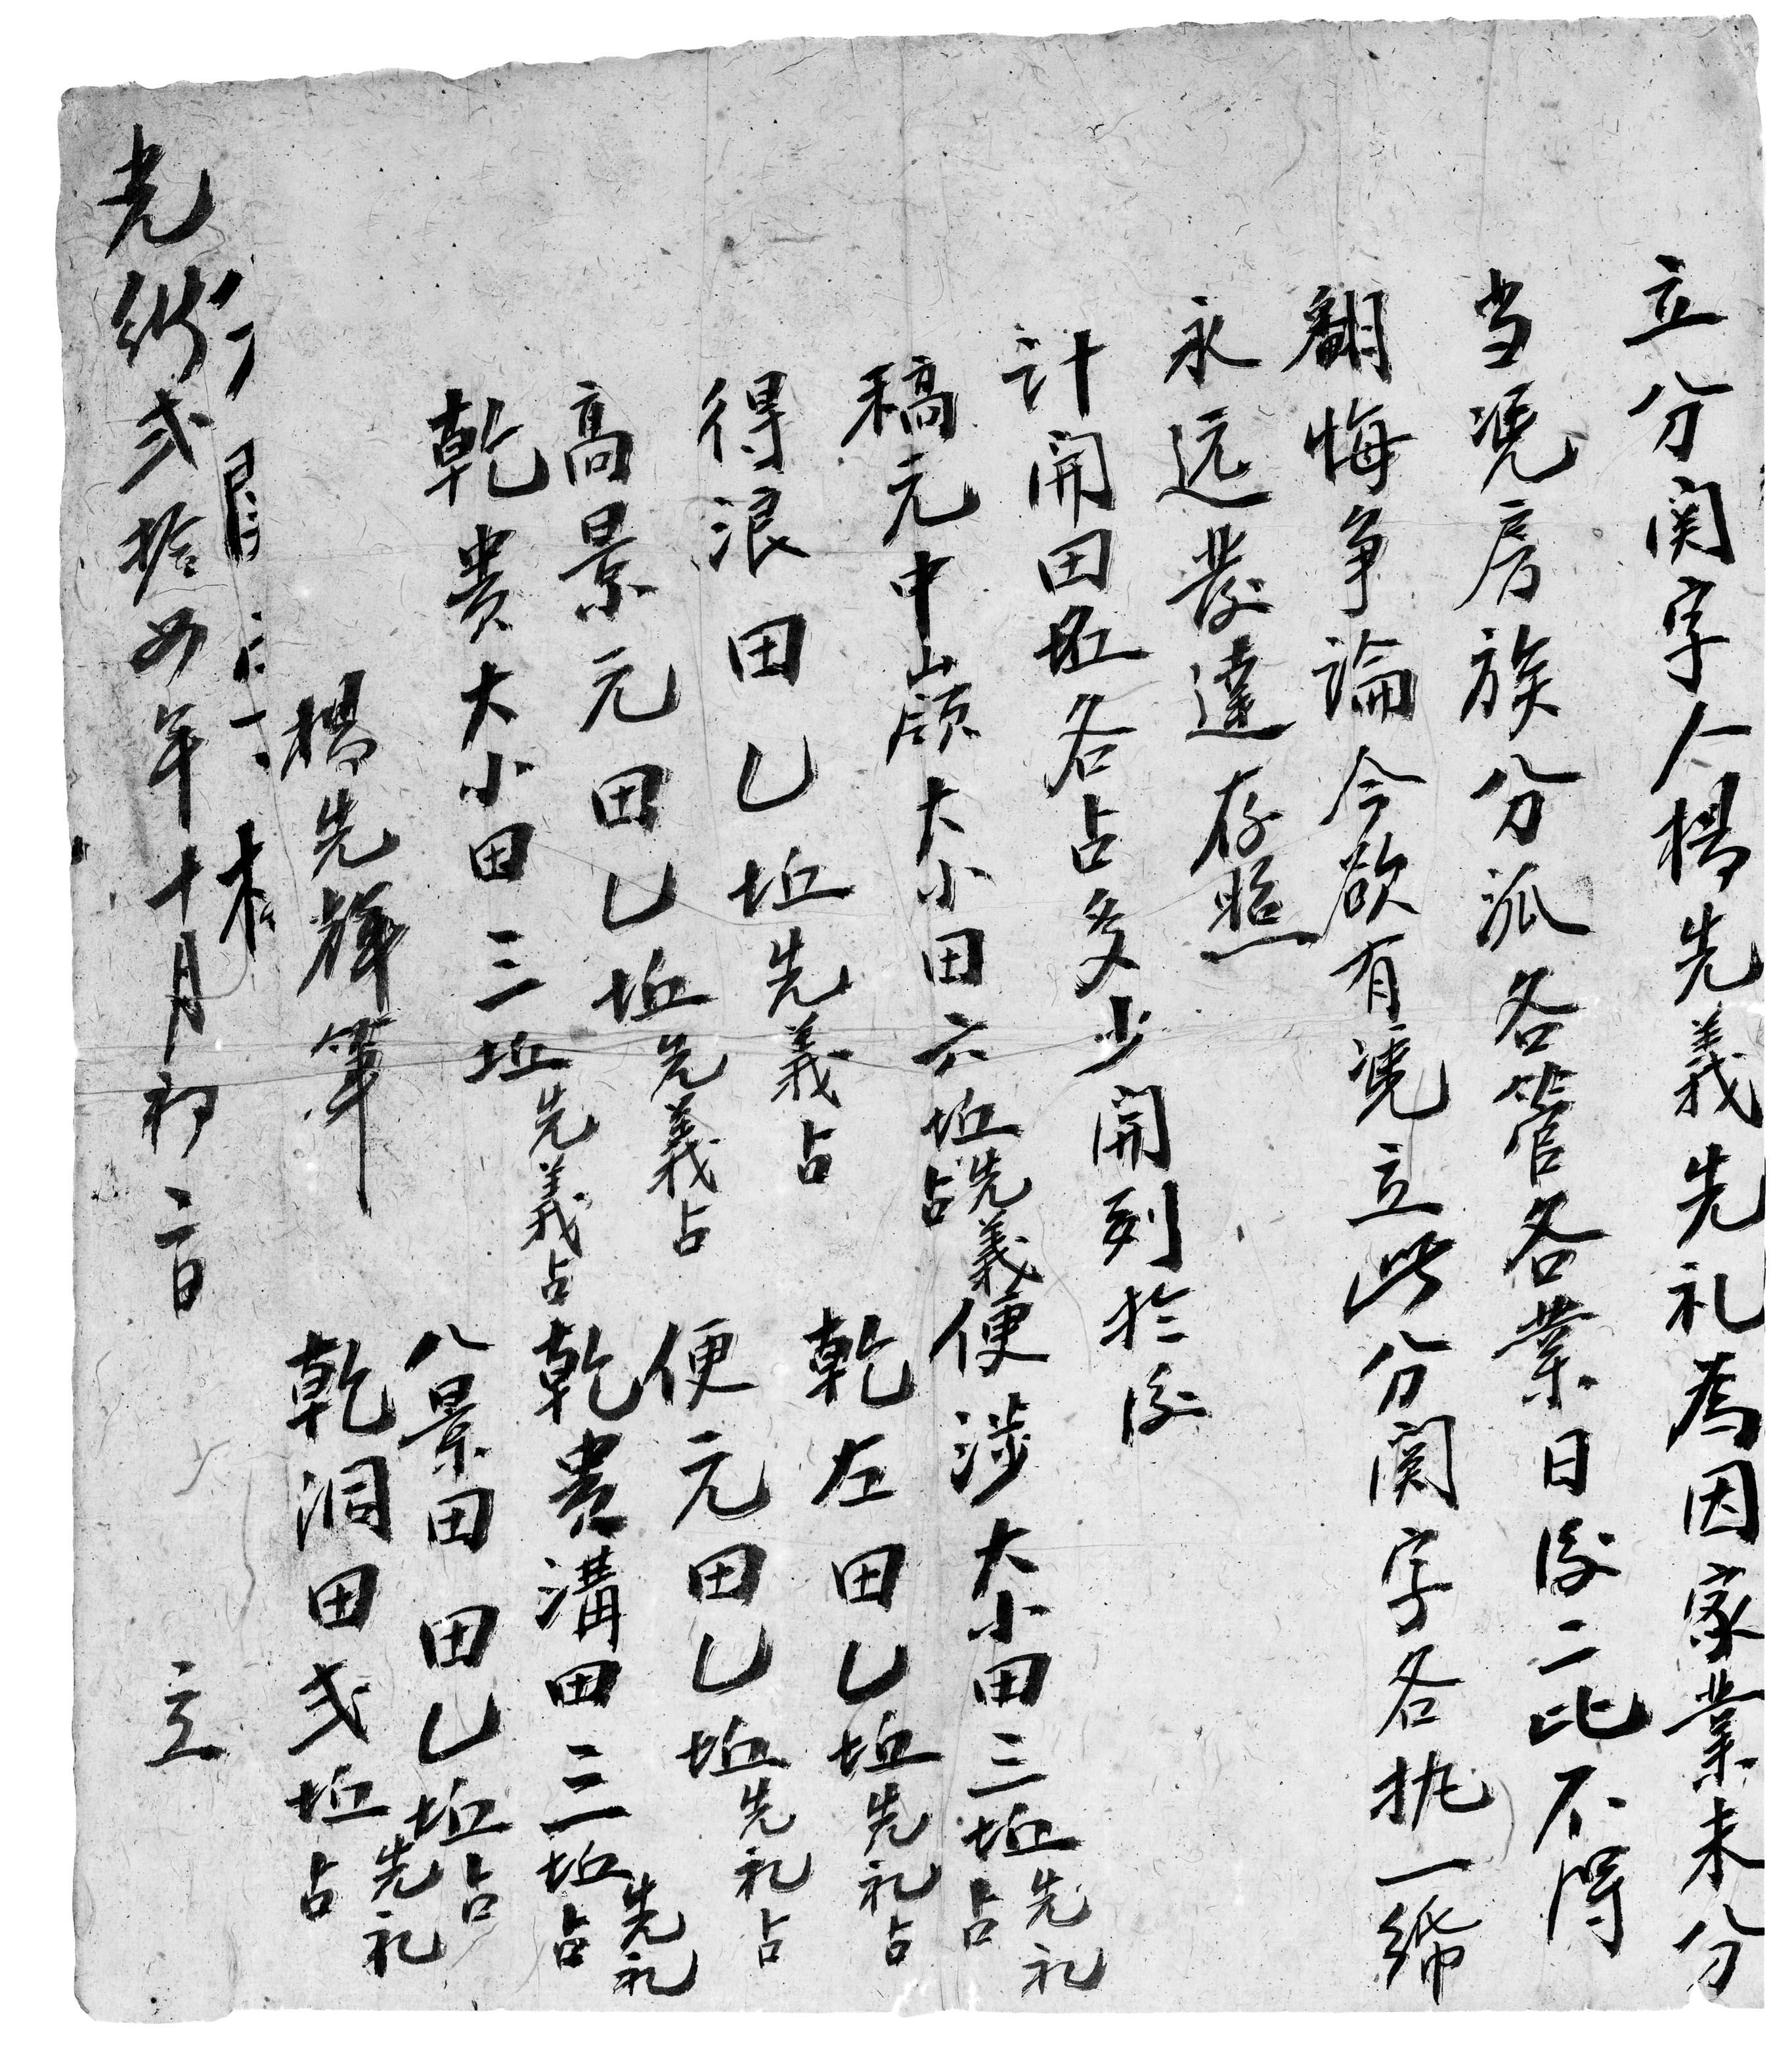 立分関字人楊先義先礼為因家業未分
当凴房族分派各管各業日後二比不得
翻悔争論今欲有凴立此分関字各执一紙
永远發達存照
計開田坵各占多少開列於後
稿元中嶺大小田六坵先義占
便涉大小田三坵先礼占
得浪田乚坵先義占
乾左田乚坵先礼占
高景元田乚坵先義占
便元田乚坵先礼占
乾贵大小田三坵先義占
乾贵溝田三坵先礼占
八景田田乚坵先礼占
乾洞田弍坵先礼占
楊先輝筆
光绪弍拾四年十月初二日 立